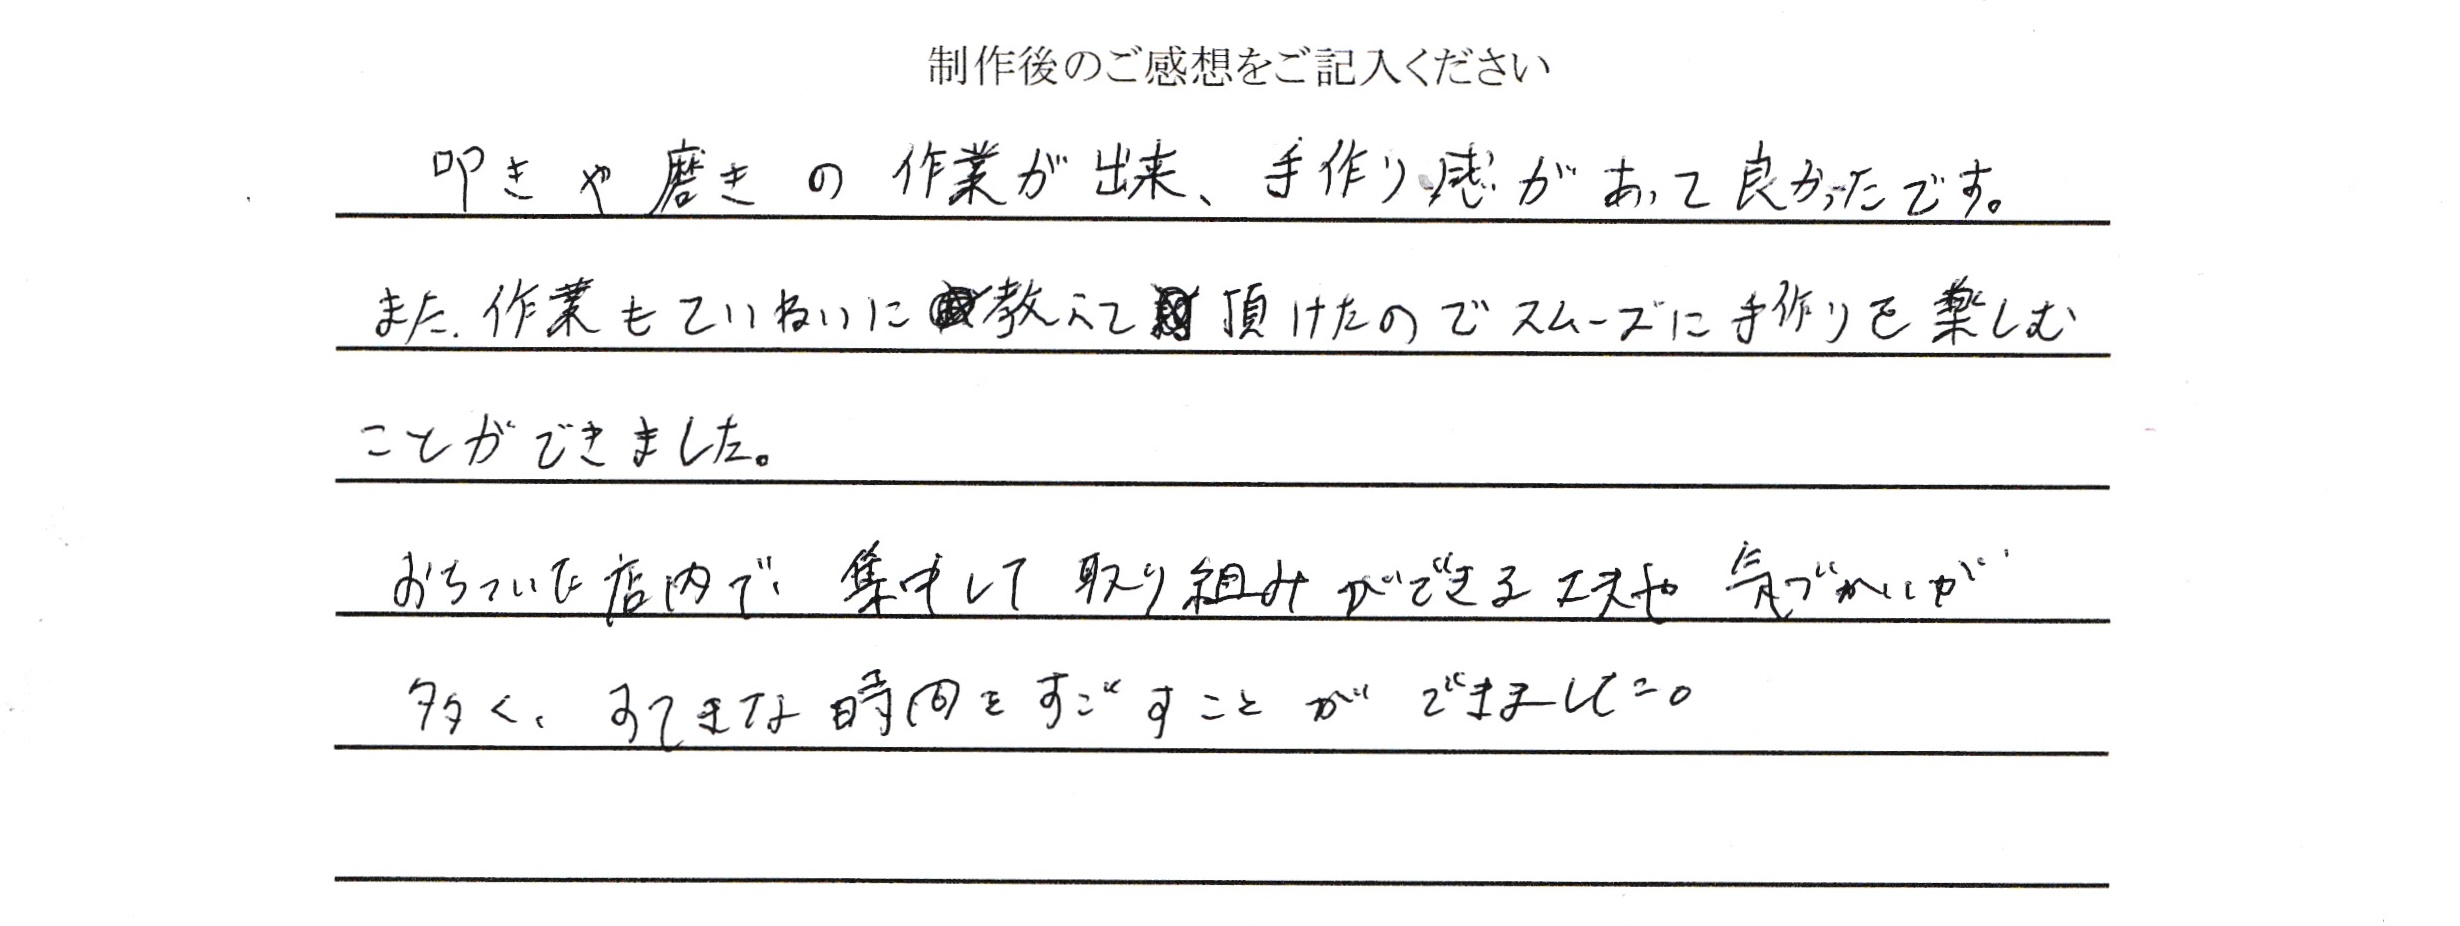 制作後のご感想をご記入ください
叩きや磨きの作業が出来、手作り感があって良かったです。
また、作業もていねいに教えて頂けたのでスムーズに手作りを楽しむ
ことができました。
おちついた店内で、集中して取り組みができる工夫や気づかいが
多く、すてきな時間をすごすことができました。